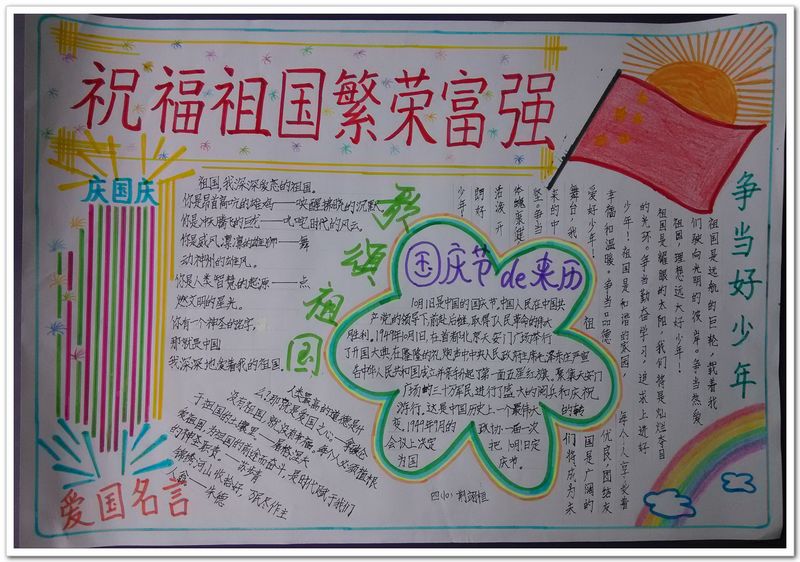 祝福祖国繁荣富强
庆国庆
祖国,我深深爱恋的祖国。
你是昂首高吭的雄鸡——唤醒拂晓的沉默
你是冲天腾飞的巨龙——叱咤时代的风云
你是威风凛凛的雄狮——舞
动神州的雄风。
你是人类智慧的起源——点
燃文明的星光。
你有一个神圣的名字,
那就是中国
我深深地爱着我的祖国
歌颂祖国
国庆节de来历
10月1日是中国的国庆节,中国人民在中国共
产党的领导下前赴后继,取得了人民革命的伟大
胜利。1949年10月1日,在首都北京天安门广场举行
了开国大典
国,聚集天安门
广场的三十万军民进行了盛大的阅兵和庆祝
游行。这是中国历史上一个最伟大的转
变。1949年 政协一届一次
会议上决定 把10月1日定
为国 庆节。
争当好少年
祖国是远航的巨轮,载着我
们驶向光明的彼岸。争当热爱
祖国,理想远大好少年!
祖国是耀眼的太阳,我们将是灿烂夺目
的光环。争当勤奋学习,追求上进好
少年!祖国是和谐的家园,每个人享受着
幸福和温暖。争当品德优良,团结友
爱好少年!
祖国是广阔的
舞台,我们将成为未
来的中坚。争当
体魄强健
活泼开
朗好
少年!
人类最高的道德是什
么?那就是爱国之心。——拿破仑
没有祖国,就没有幸福。每个人必须植根
于祖国的土壤里。——屠格涅夫
爱祖国,为祖国的前途而奋斗,是时代赋予我们
的神圣职责。——苏步青
锦绣河山收拾好,万民尽作主
人翁。——朱德
爱国名言